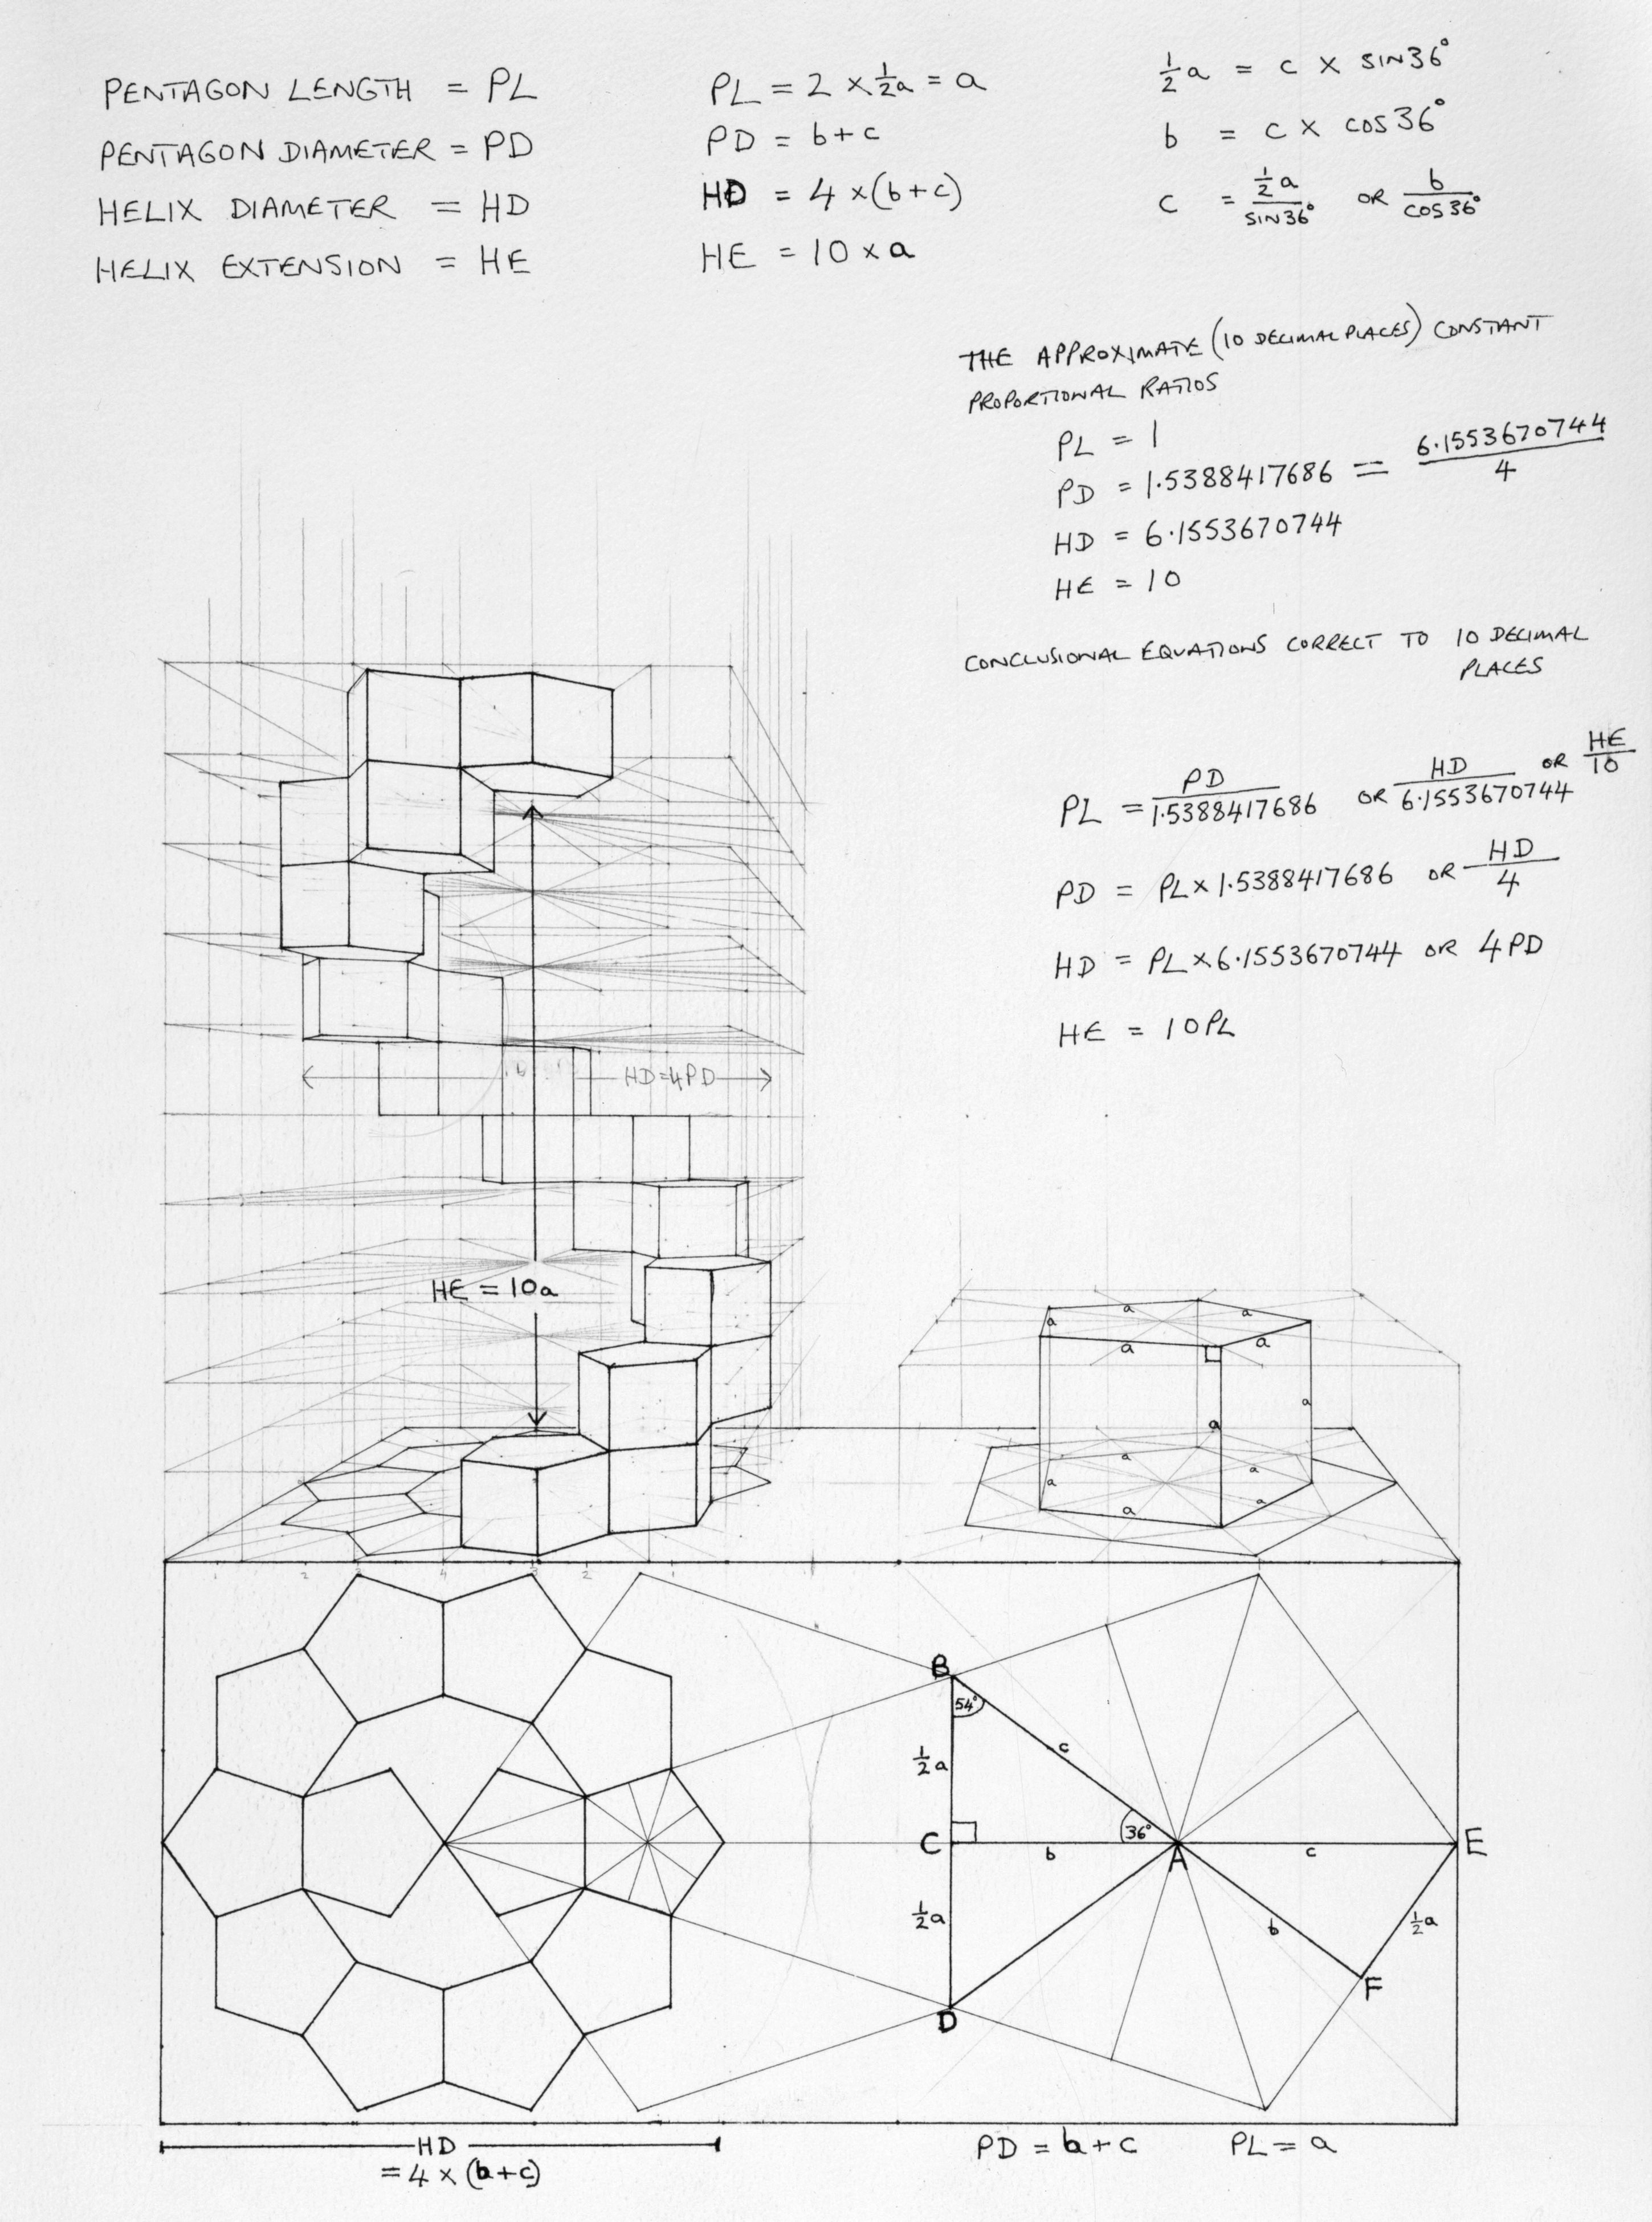 PENTAGON LENGTH = PL
PENTAGON DIAMETER = PD
HELIX DIAMETER = HD
HELIX EXTENSION = HE
PL = 2 × ½a = a
PD = b+c
HD = 4 ×(b+c)
HE = 10 × a
½a = c × SIN36°
b = c × COS36°
c = ½a/SIN36° OR b/COS36°
THE APPROXIMATE (10 DECIMAL PLACES) CONSTANT
PROPORTIONAL RATIOS
PL = 1
PD = 1.5388417686 = 6.1553670744/4
HD = 6.1553670744
HE = 10
CONCLUSIONAL EQUATIONS CORRECT TO 10 DECIMAL
PLACES
PL = PD/1.5388417686 OR HD/6.1553670744 OR HE/10
PD = PL×1.5388417686 OR HD/4
HD = PL×6.1553670744 OR 4PD
HE = 10PL
HD=4PD
HE = 10a
a
a
a
a
a
a
a
a
a
a
a
a
B
54°
c
½a
C
36°
b
A
c
E
½a
b
½a
F
D
HD
= 4 × (b+c)
PD = b+c
PL = a